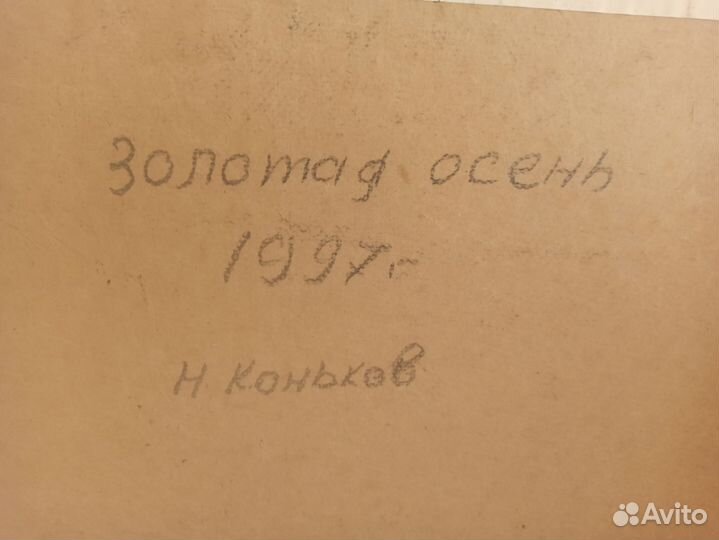 Золотая осень
1997г
Н Коньков
Avito